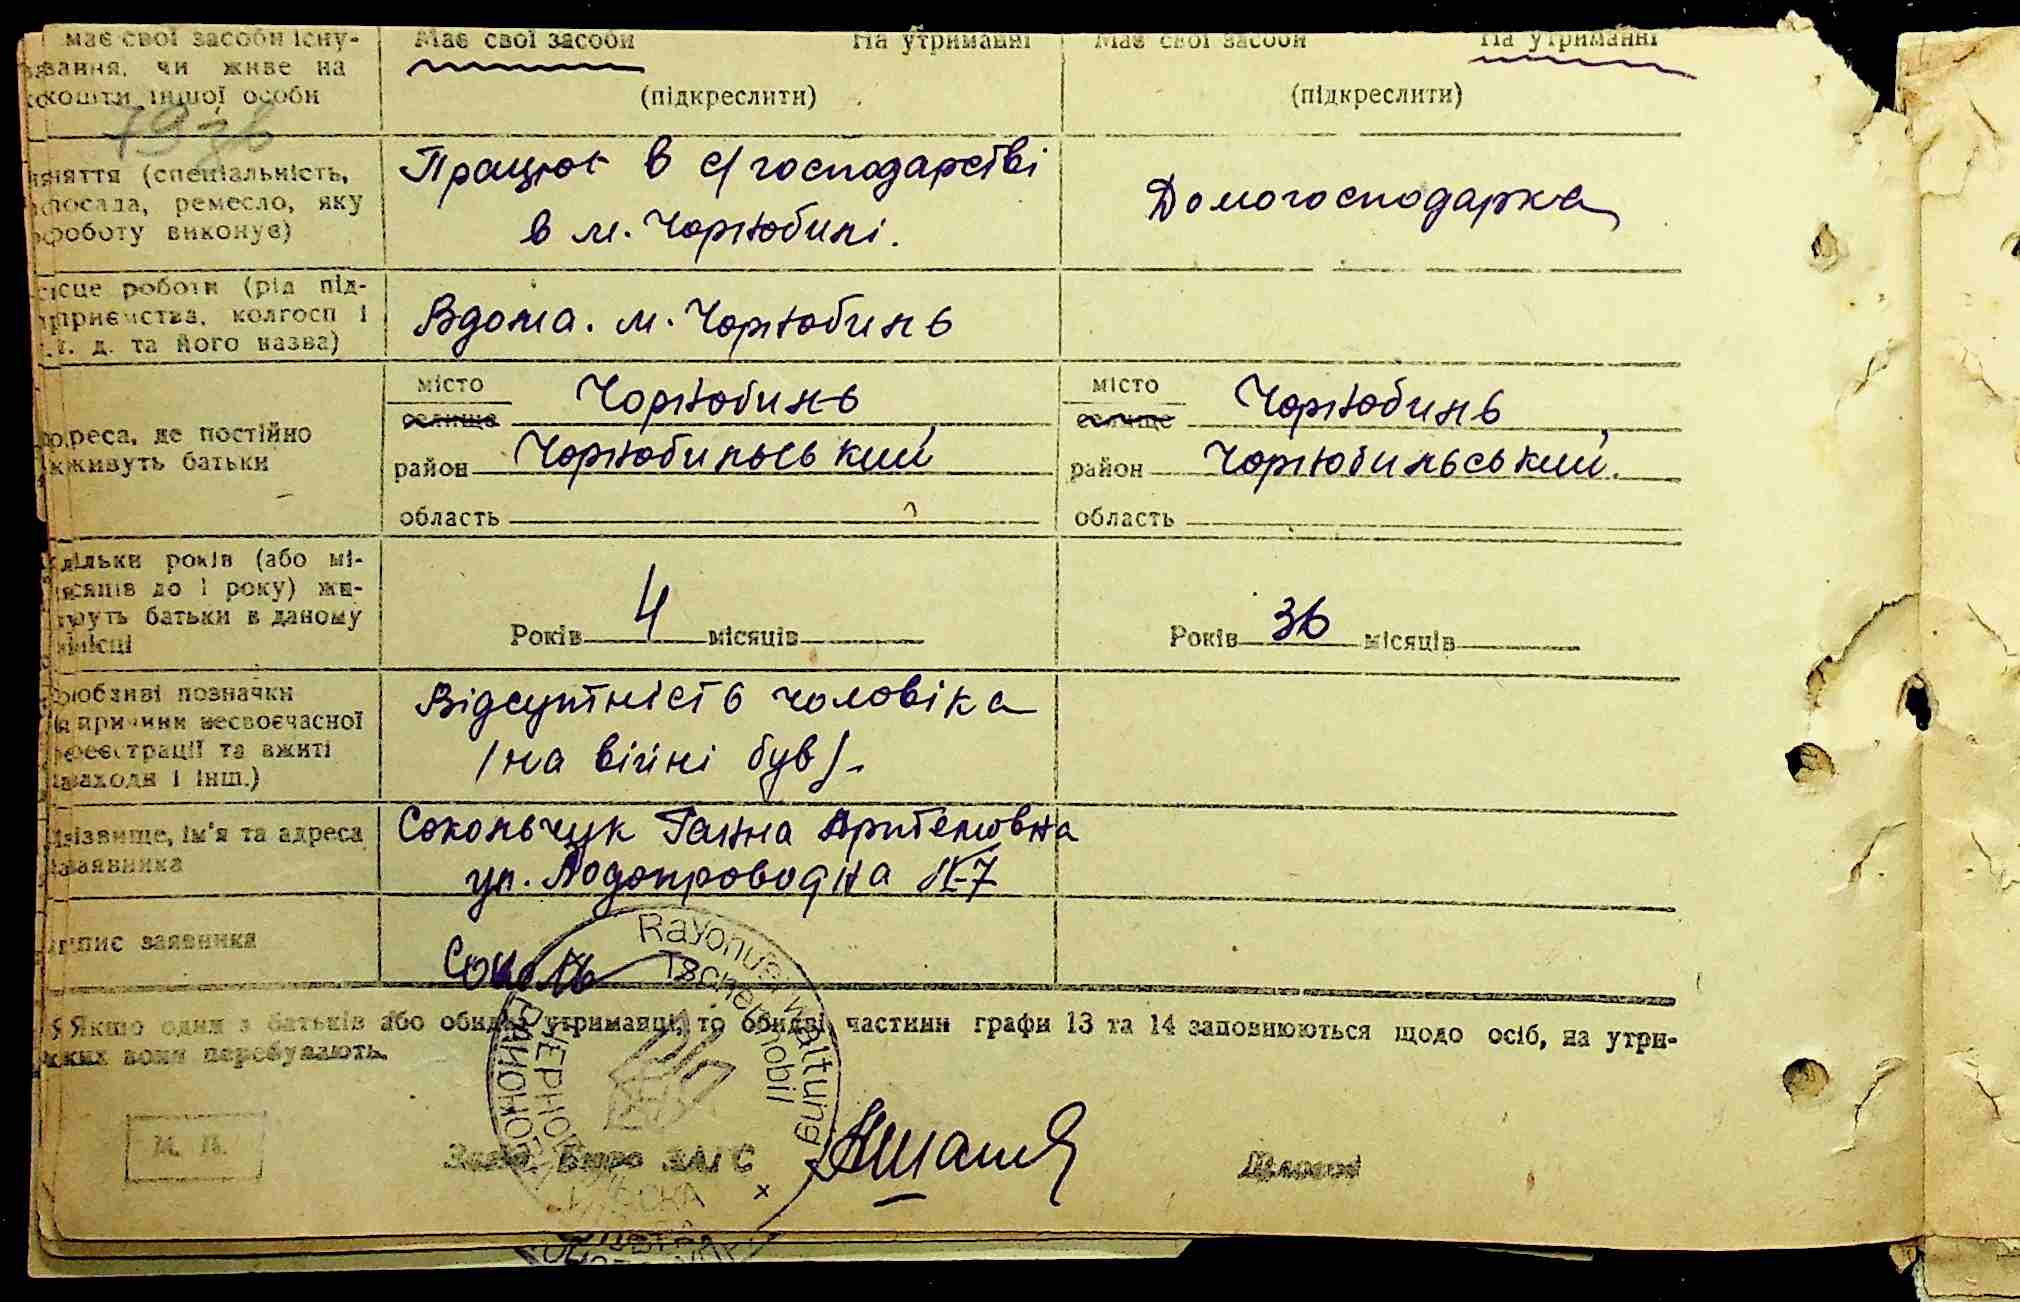 має свої засоби існу-
вання, чи живе на
кошти іншої особи
Має свої засоби На утриманні
(підкреслити)
Має свої засоби На утриманні
(підкреслити)
заняття (спеціальність,
посада, ремесло, яку
роботу виконує)
Працює в с/господарстві
в м. Чорнобині.
Домогосподарка
місце роботи (рід під-
приємства, колгосп і
т. д. та його назва)
Вдома. м. Чорнобинь
Адреса, де постійно
живуть батьки
місто
селище
Чорнобинь
район Чорнобильський
область
місто
селище
Чорнобинь
район Чорнобильський.
область
скільки років (або мі-
сяців до 1 року) жи-
вуть батьки в даному
місці
Років 4 місяців
Років 36 місяців
Особливі позначки
причини несвоєчасної
реєстрації та вжиті
заходи і інш.)
Відсутність чоловіка
/на війні був/.
прізвище, ім'я та адреса
заявника
Сокольчук Ганна Артемовна
ул. Водопроводна №7
підпис заявника
Соколь
Якщо один з батьків або обидва утриманці, то обидві частини графи 13 та 14 заповнюються щодо осіб, на утри-
яких вони перебувають.
Rayonverwaltung
Tschernobil
М. П.
Зав. Бюро ЗАГС
Діловод